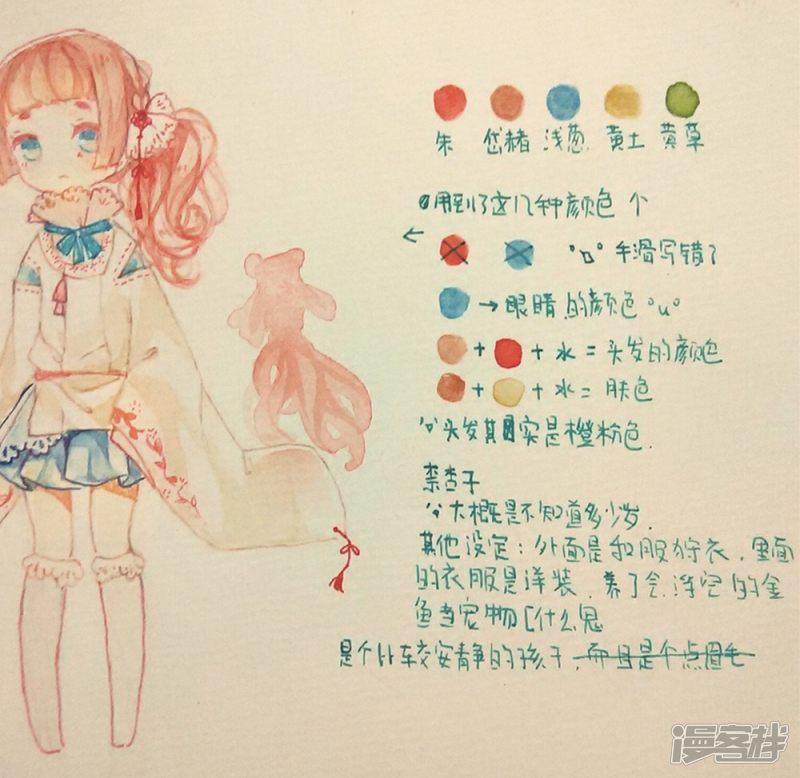 朱 岱赭 浅葱 黄土 黄草
用到了这几种颜色 个
← "口" 手滑写错了
→ 眼睛的颜色 "u"
+ + 水 = 头发的颜色
+ + 水 = 肤色
头发其实是橙粉色.
柰杏子
大概是不知道多少岁.
其他设定：外面是和服狩衣，里面
的衣服是洋装，养了会浮空的金
鱼当宠物[什么鬼
是个比较安静的孩子，而且是个点眉毛
漫客栈